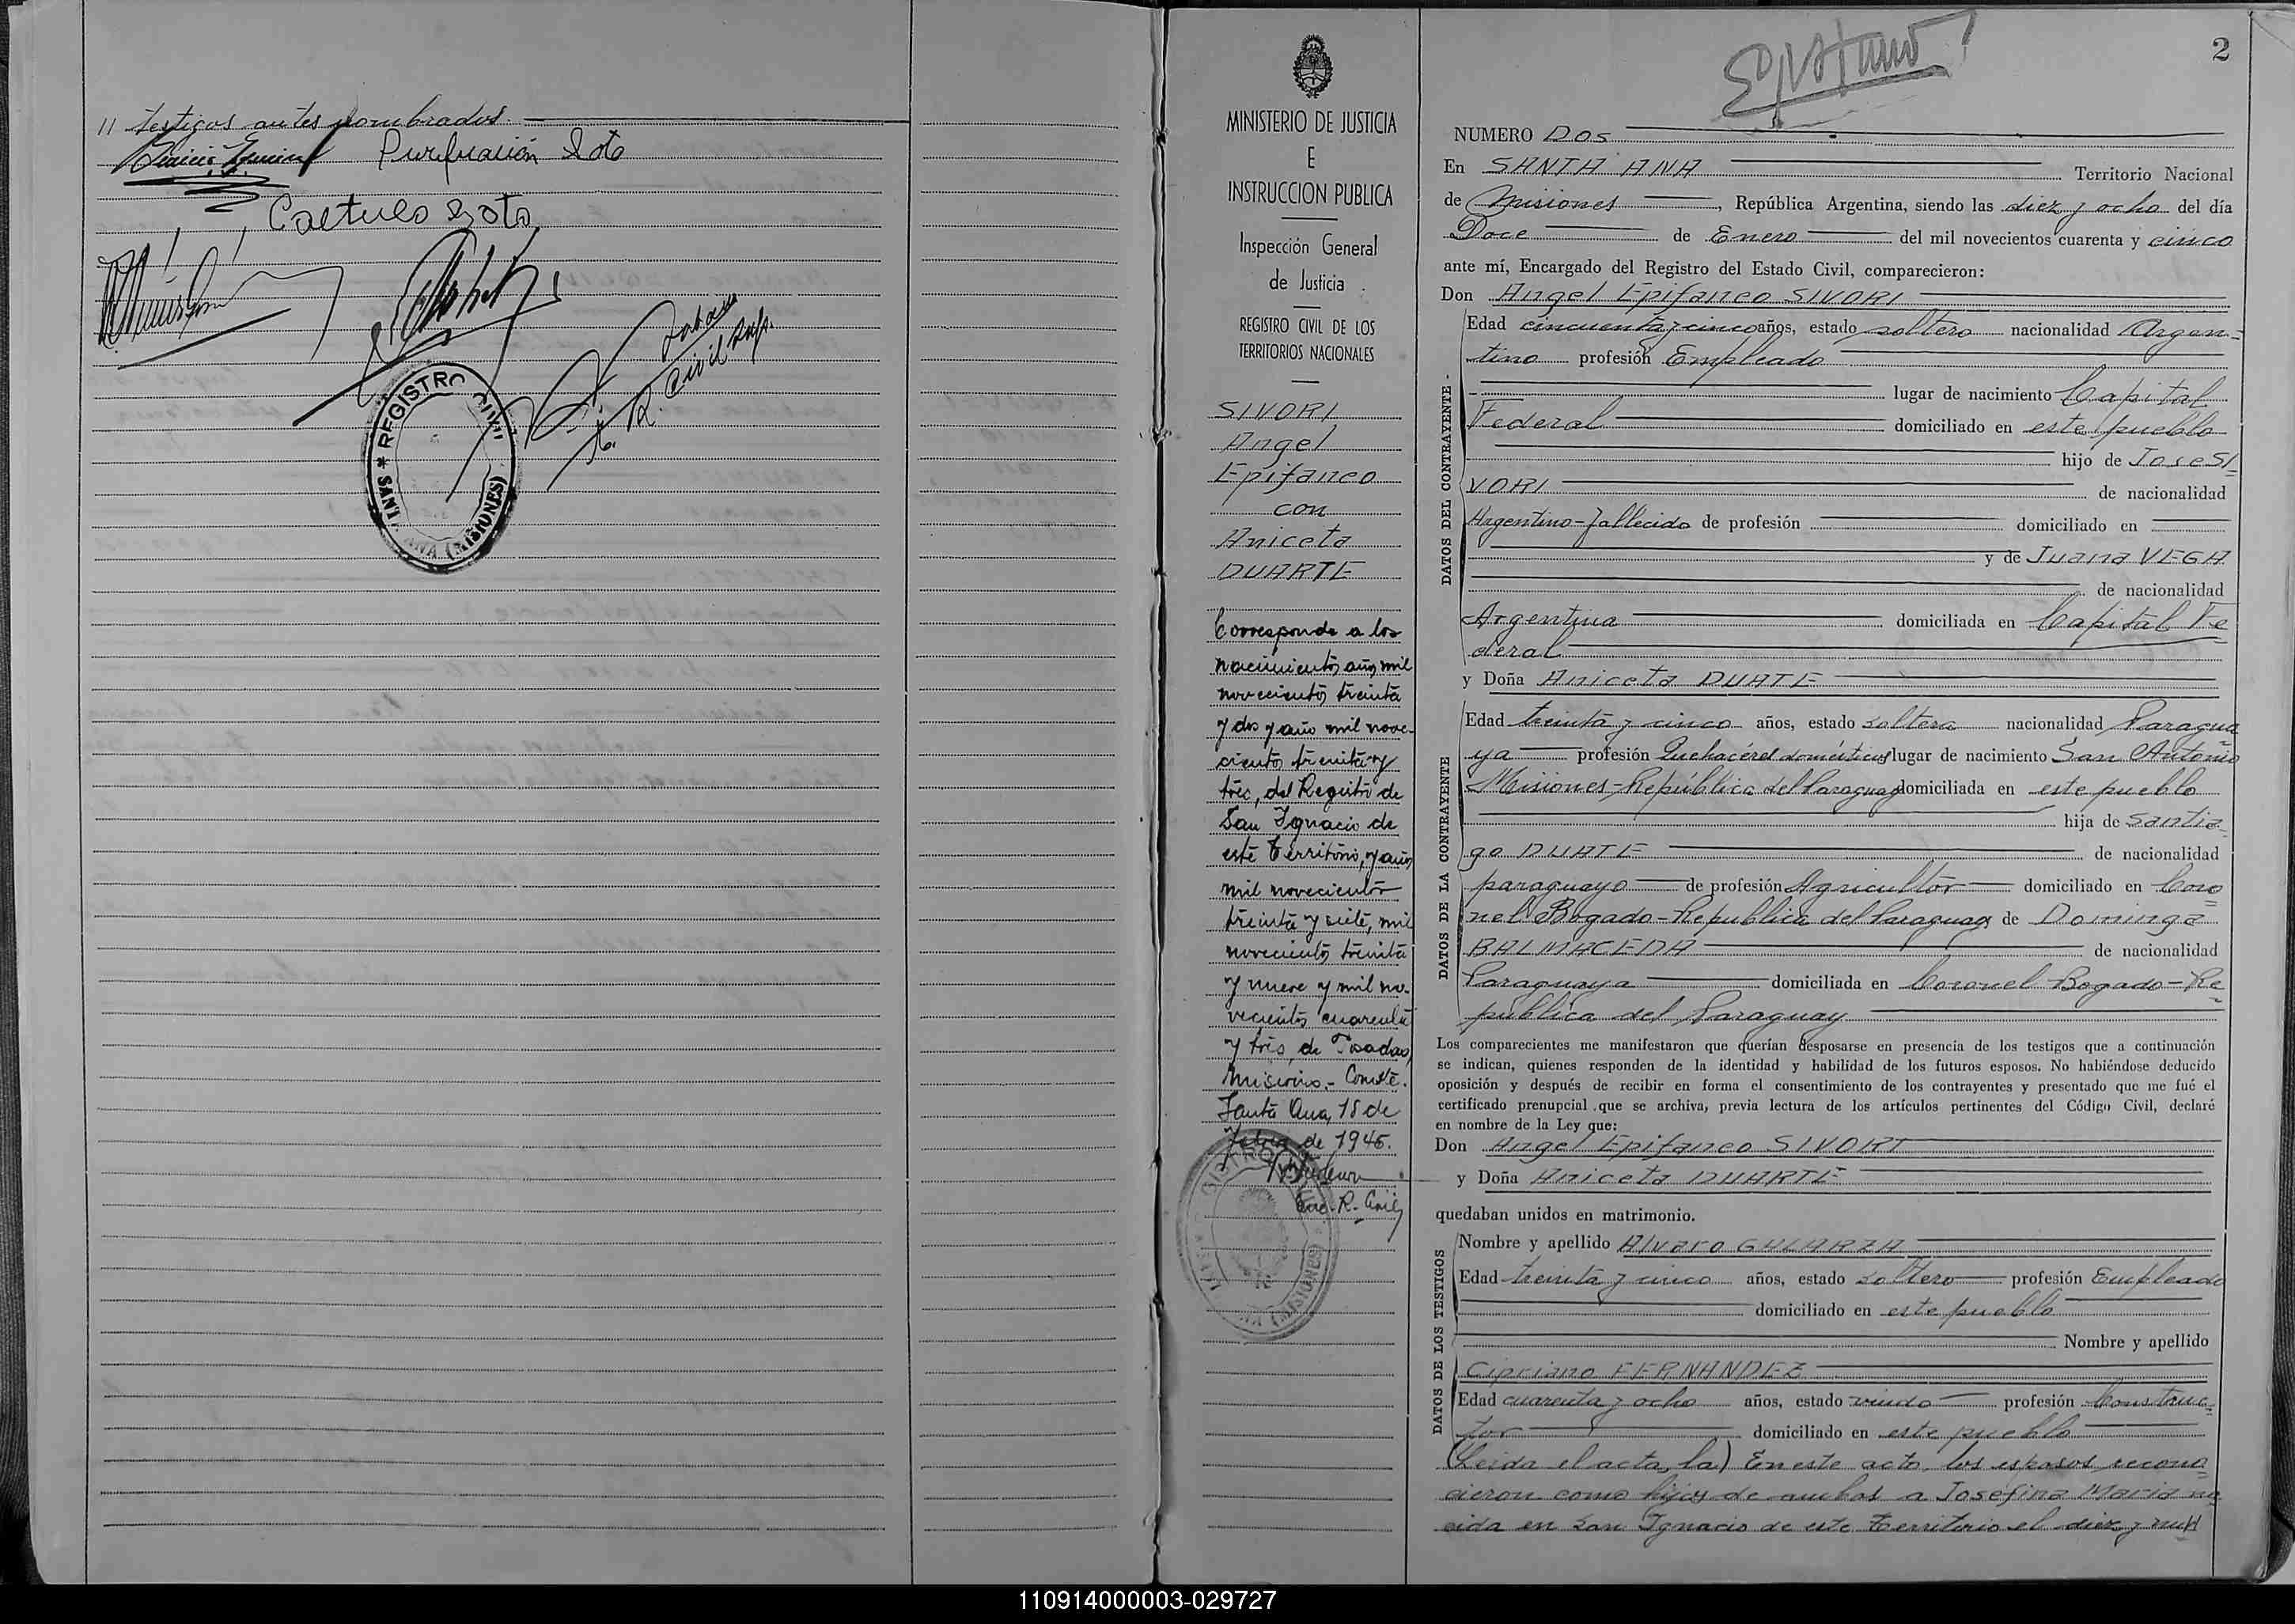 // testigos antes nombrados.
Purificación Soto
Caetulo Soto
R. Civil Sup.
* REGISTRO CIVIL
SANTA ANA (MISIONES)
MINISTERIO DE JUSTICIA
E
INSTRUCCION PUBLICA
Inspección General
de Justicia
REGISTRO CIVIL DE LOS
TERRITORIOS NACIONALES
SIVORI
Angel
Epifaneo
con
Aniceta
DUARTE
Corresponde a los
nacimientos años mil
novecientos treinta
y dos y año mil nove-
cientos treinta y
tres, del Registro de
San Ignacio de
este Territorio, y años
mil novecientos
treinta y siete, mil
novecientos treinta
y nueve y mil no-
vecientos cuarenta
y tres, de Posadas,
Misiones.- Conste.
Santa Ana, 18 de
de 1945.
Enc. R. Civil
2
NUMERO DOS
En SANTA ANA Territorio Nacional
de Misiones, República Argentina, siendo las diez y ocho del día
Doce de Enero del mil novecientos cuarenta y cinco
ante mí, Encargado del Registro del Estado Civil, comparecieron:
Don Angel Epifaneo SIVORI
DATOS DEL CONTRAYENTE -
Edad cincuenta y cinco años, estado soltero nacionalidad Argen=
tino profesión Empleado
lugar de nacimiento Capital
Federal domiciliado en este pueblo
hijo de Jose SI_
VORI de nacionalidad
Argentino-fallecido de profesión domiciliado en
y de Juana VEGA
de nacionalidad
Argentina domiciliada en Capital Fe
deral
y Doña Aniceta DUATE
DATOS DE LA CONTRAYENTE
Edad treinta y cinco años, estado soltera nacionalidad Paragua=
ya profesión Quehacéres domésticos lugar de nacimiento San Antonio
Misiones-República del Paraguay domiciliada en este pueblo
hija de Santia=
go DUATE de nacionalidad
paraguayo de profesión Agricultor domiciliado en Coro=
nel Bogado-Republica del Paraguay de Dominga
BALMACEDA de nacionalidad
Paraguaya domiciliada en Coronel Bogado-Re=
pública del Paraguay
Los comparecientes me manifestaron que querían desposarse en presencia de los testigos que a continuación
se indican, quienes responden de la identidad y habilidad de los futuros esposos. No habiéndose deducido
oposición y después de recibir en forma el consentimiento de los contrayentes y presentado que me fué el
certificado prenupcial que se archiva, previa lectura de los artículos pertinentes del Código Civil, declaré
en nombre de la Ley que:
Don Angel Epifaneo SIVORI
y Doña Aniceta DUARTE
quedaban unidos en matrimonio.
DATOS DE LOS TESTIGOS
Nombre y apellido Alvaro GALARZA
Edad treinta y cinco años, estado soltero profesión Empleado
domiciliado en este pueblo
Nombre y apellido
Cipriano FERNANDEZ
Edad cuarenta y ocho años, estado viudo profesión Construc=
tor domiciliado en este pueblo
(Leida el acta, la) En este acto, los esposos recono=
cieron como hijos de ambos a Josefina Maria na
cida en San Ignacio de este Territorio el diez y nue//
110914000003-029727